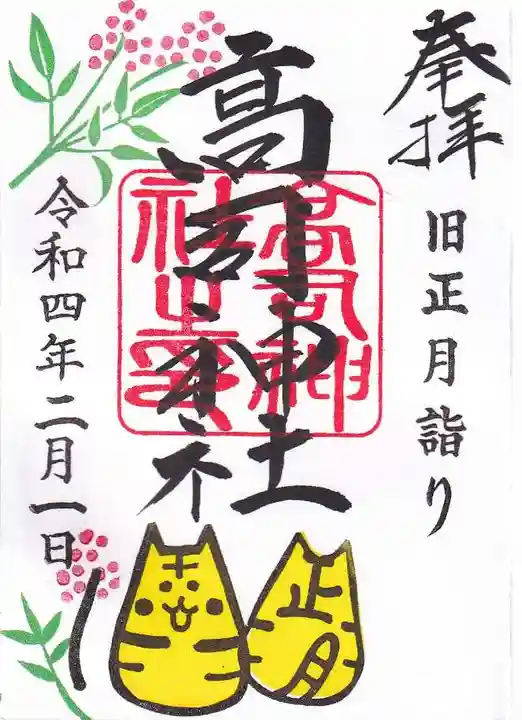 奉拝
旧正月詣り
高司神社
高司神
社之璽
令和四年二月一日
正月